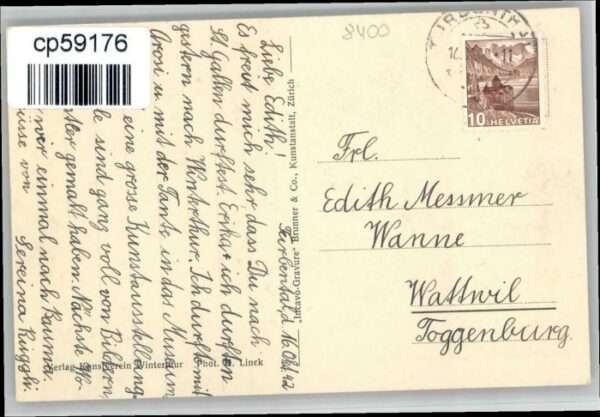 cp59176
8400
10 HELVETIA
Turbenthal, d. 16. Okt. 42
Liebe Edith!
Es freut mich sehr, dass Du nach
St. Gallen durftest. Erika + ich durften
gestern nach Winterthur. Ich durfte mit
Arosi u. mit der Tante in das Museum
eine grosse Kunstausstellung
sind ganz voll von Bildern
gemalt haben. Nächste Wo-
wir einmal nach Bauma.
von
Sereina Ringgli
"Intavo-Gravure" Brunner & Co., Kunstanstalt, Zürich
Verlag Kunstverein Winterthur Phot. Linck
Frl.
Edith Messmer
Wanne
Wattwil
Toggenburg.